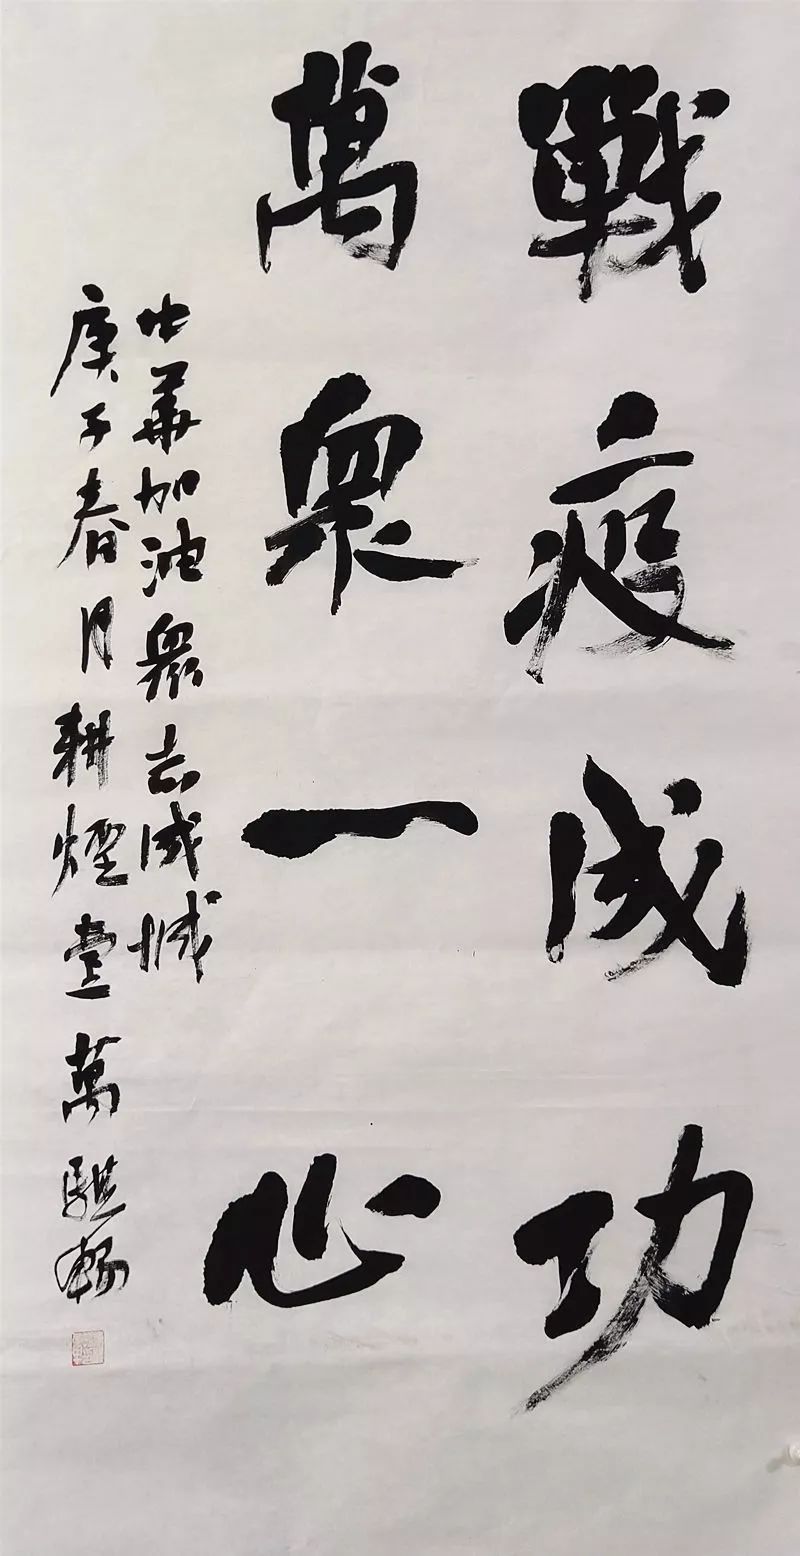 戰疫成功
萬衆一心
中華加油衆志成城
庚子春月耕煙堂萬騏暢